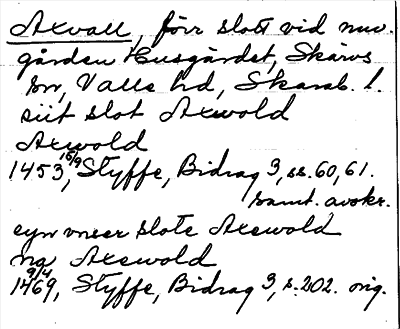 Axvall, förr slott vid nuv.
gården Husgärdet, Skärvs
sn, Valle hd, Skarab. l.
siit slot Axwold
Axwold
1453 16/9, Styffe, Bidrag 3, ss. 60, 61.
samt. avskr.
eyn vnser slote Axewold
ng Axewold
1469 9/4, Styffe, Bidrag 3, s. 202. orig.